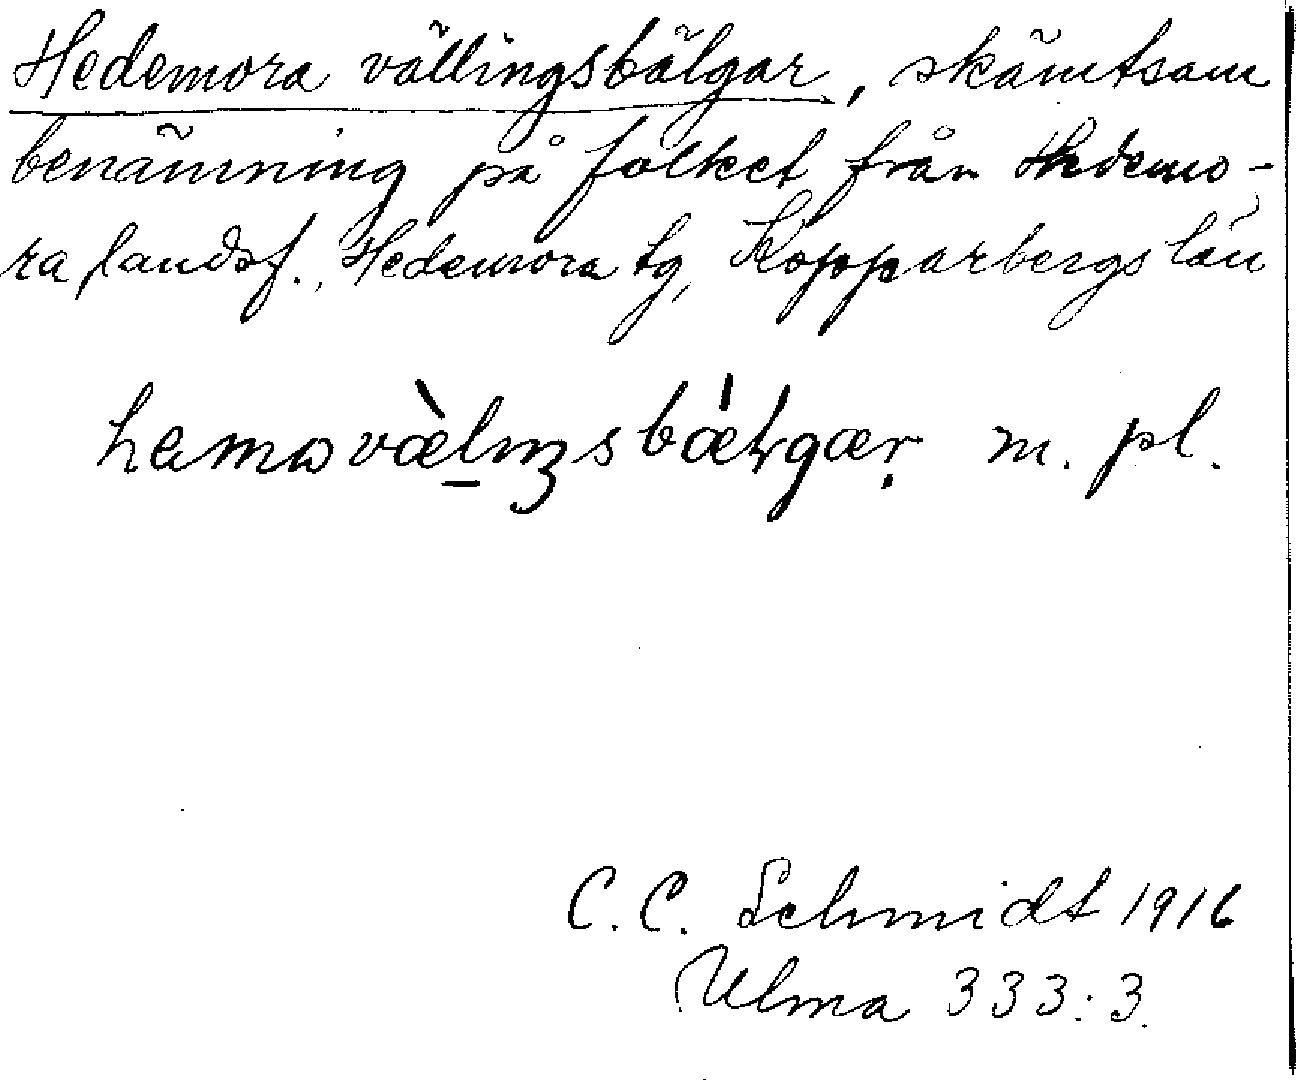 Hedemora vällingsbälgar, skämtsam
benämning på folket från Hedemo-
ra landsf., Hedemora tg, Kopparbergs län
m. pl.
C. C. Schmidt 1916
Ulma 333:3.